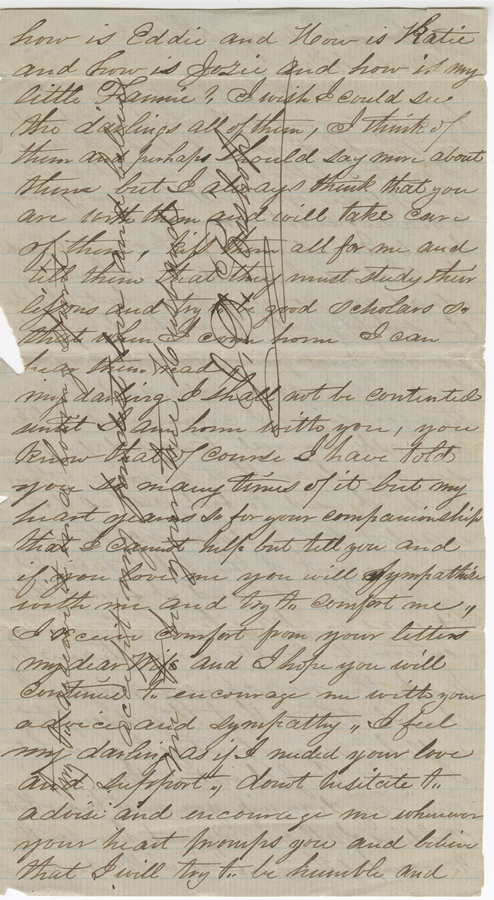 how is Eddie and How is Katie
and how is Jozie and how is my
little Fannie? I wish I could see
the darlings all of them, I think of
them and perhaps should say more about
them but I always think that you
are with them and will take care
of them, kiss them all for me and
tell them that they must study their
lessons and try to be good scholars so
that when I come home I can
hear them read
my darling I shall not be contented
until I am home with you, you
know that of course I have told
you so many times of it but my
heart yearns so for your companionship
that I cannot help but tell you and
if you love me you will sympathise
with me and try to comfort me,,
I receive comfort from your letters
my dear wife and I hope you will
continue to encourage me with your
advice and sympathy,, I feel
my darling as if I needed your love
and support,, dount hesitate to
advise and encourage me whenever
your heart promps you and believe
that I will try to be humble and
accept my fondest love and believe
me to be your true Husband